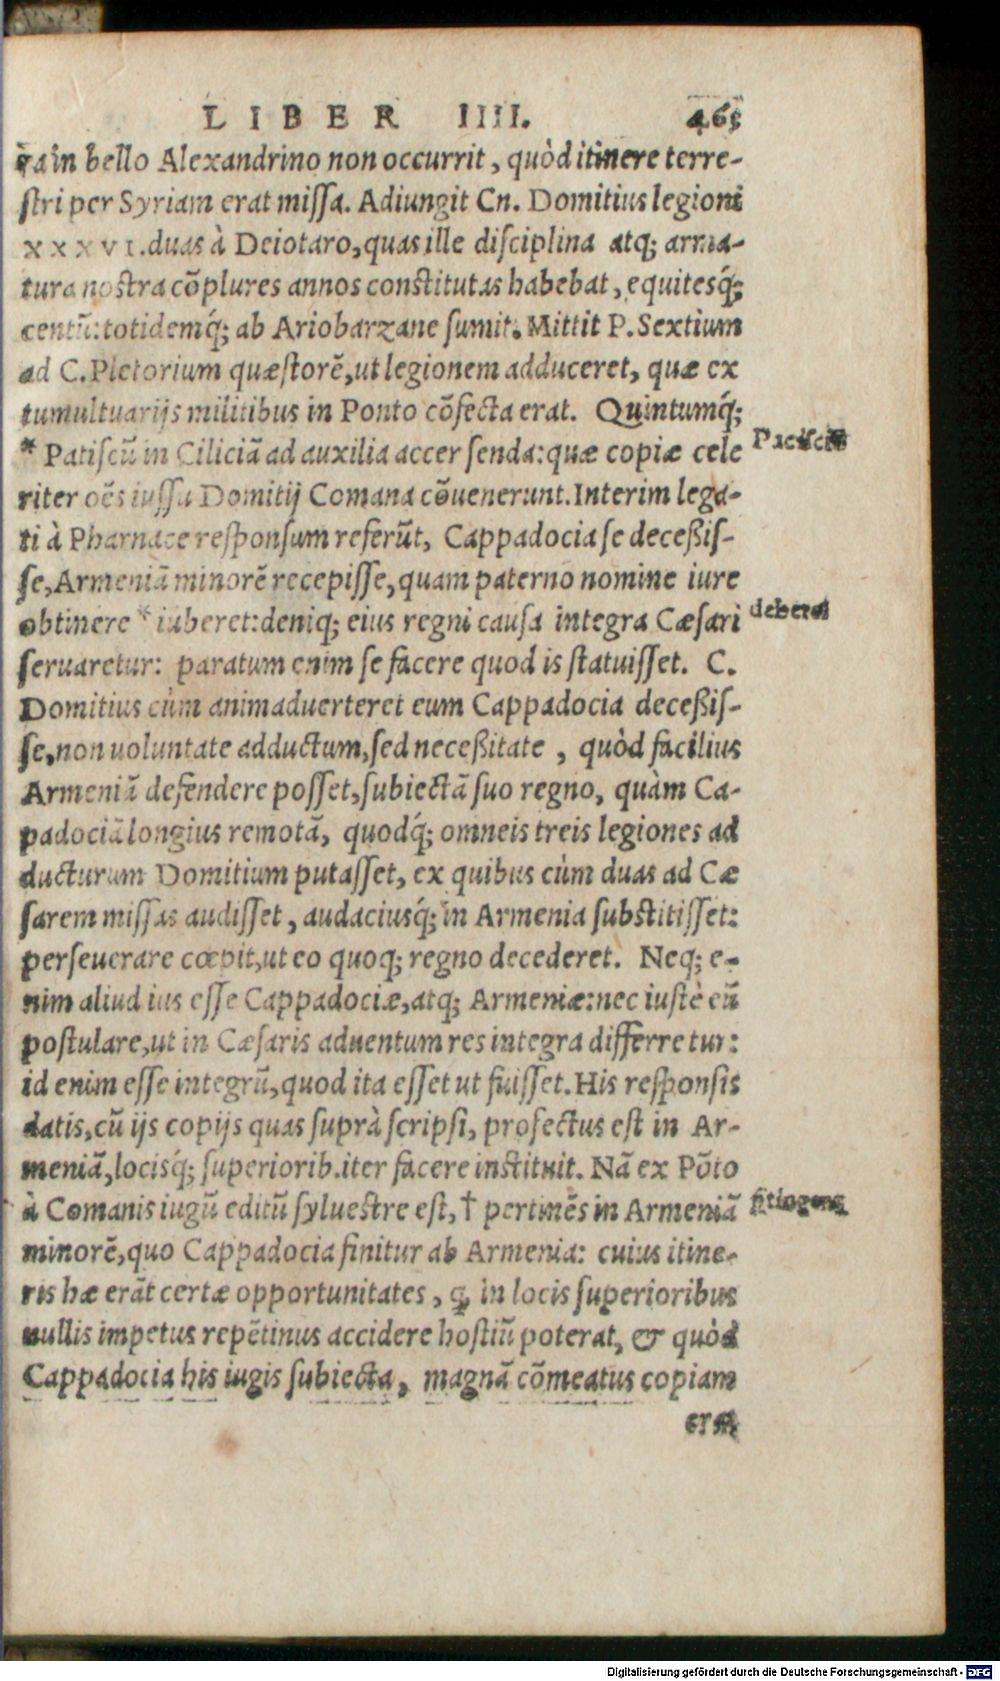 LIBER IIII. 465
ra in bello Alexandrino non occurrit, quòd itinere terre-
ſtri per Syriam erat miſſa. Adiungit Cn. Domitius legioni
XXXVI. duas à Deiotaro, quas ille diſciplina atq; arma-
tura noſtra cõplures annos conſtitutas habebat, equitesq́;
centũ: totidemq́; ab Ariobarzane ſumit. Mittit P. Sextium
ad C. Pletorium quæſtorẽ, ut legionem adduceret, quæ ex
tumultuarijs militibus in Ponto cõfecta erat. Quintumq́;
* Patiſcũ in Ciliciã ad auxilia accerſenda: quæ copiæ cele
riter oẽs iuſſu Domitij Comana cõuenerunt. Interim lega-
ti à Pharnace reſponſum referũt, Cappadocia ſe deceßiſ-
ſe, Armeniã minorẽ recepiſſe, quam paterno nomine iure
obtinere * iuberet: deniq; eius regni cauſa integra Cæſari
ſeruaretur: paratum enim ſe facere quod is ſtatuiſſet. C.
Domitius cùm animaduerteret eum Cappadocia deceßiſ-
ſe, non uoluntate adductum, ſed neceßitate, quòd facilius
Armeniã defendere poſſet, ſubiectã ſuo regno, quàm Ca-
padociã longius remotã, quodq́; omneis treis legiones ad
ducturum Domitium putaſſet, ex quibus cùm duas ad Cæ
ſarem miſſas audiſſet, audaciusq́; in Armenia ſubſtitiſſet:
perſeuerare cœpit, ut eo quoq; regno decederet. Neq; e-
nim aliud ius eſſe Cappadociæ, atq; Armeniæ: nec iuſtè eũ
poſtulare, ut in Cæſaris aduentum res integra differretur:
id enim eſſe integrũ, quod ita eſſet ut fuiſſet. His reſponſis
datis, cũ ijs copijs quas ſuprà ſcripſi, profectus eſt in Ar-
meniã, locisq́; ſuperiorib. iter facere inſtituit. Nã ex Põto
à Comanis iugũ editũ ſylueſtre eſt, † pertinẽs in Armeniã
minorẽ, quo Cappadocia finitur ab Armenia: cuius itine-
ris hæ erãt certæ opportunitates, q, in locis ſuperioribus
nullis impetus repẽtinus accidere hoſtiũ poterat, & quòd
Cappadocia his iugis ſubiecta, magnã cõmeatus copiam
Paciſciũ
deberet
Digitalisierung gefördert durch die Deutsche Forschungsgemeinschaft - DFG